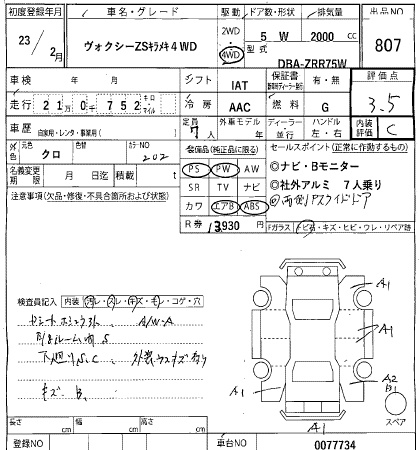 初度登録年月 車名・グレード 駆動 ドア数・形状 排気量 出品NO
23/2月 ヴォクシーZSキラメキ4WD 2WD 4WD 5 W 2000 cc 807
型式 DBA-ZRR75W
車検 年 月 シフト IAT 保証書 有・無 評価点
走行 21万0千752 キロ・マイル 冷房 AAC 燃料 G 3.5
車歴 自家用・レンタ・事業用( ) 定員 7人 外車モデル 年 ディーラー 並行 ハンドル 左・右 内装評価 C
外色 元色 クロ 色 カラーNO 202
装備品(純正品に限る) セールスポイント(正常に作動するもの)
名義変更期限 月 日迄 積載 t
PS PW AW ◎ナビ・Bモニター
注意事項(欠品・修復・不具合箇所および状態)
SR TV ナビ ◎社外アルミ 7人乗り
カワ エアB ABS ◎両側パワスライドドア
R券 13,930円
Fガラス トビ石・キズ・ヒビ・ウレ・リペア跡
検査員記入 内装 汚レ・スレ・キズ・モレ・コゲ・穴
A/W-A
下廻りS.C 外装ウスキズ有り
キズ B1
A1
A1
A1
A2
B1
A1
スペア
長さ cm 幅 cm 高さ cm
登録NO 車台NO 0077734